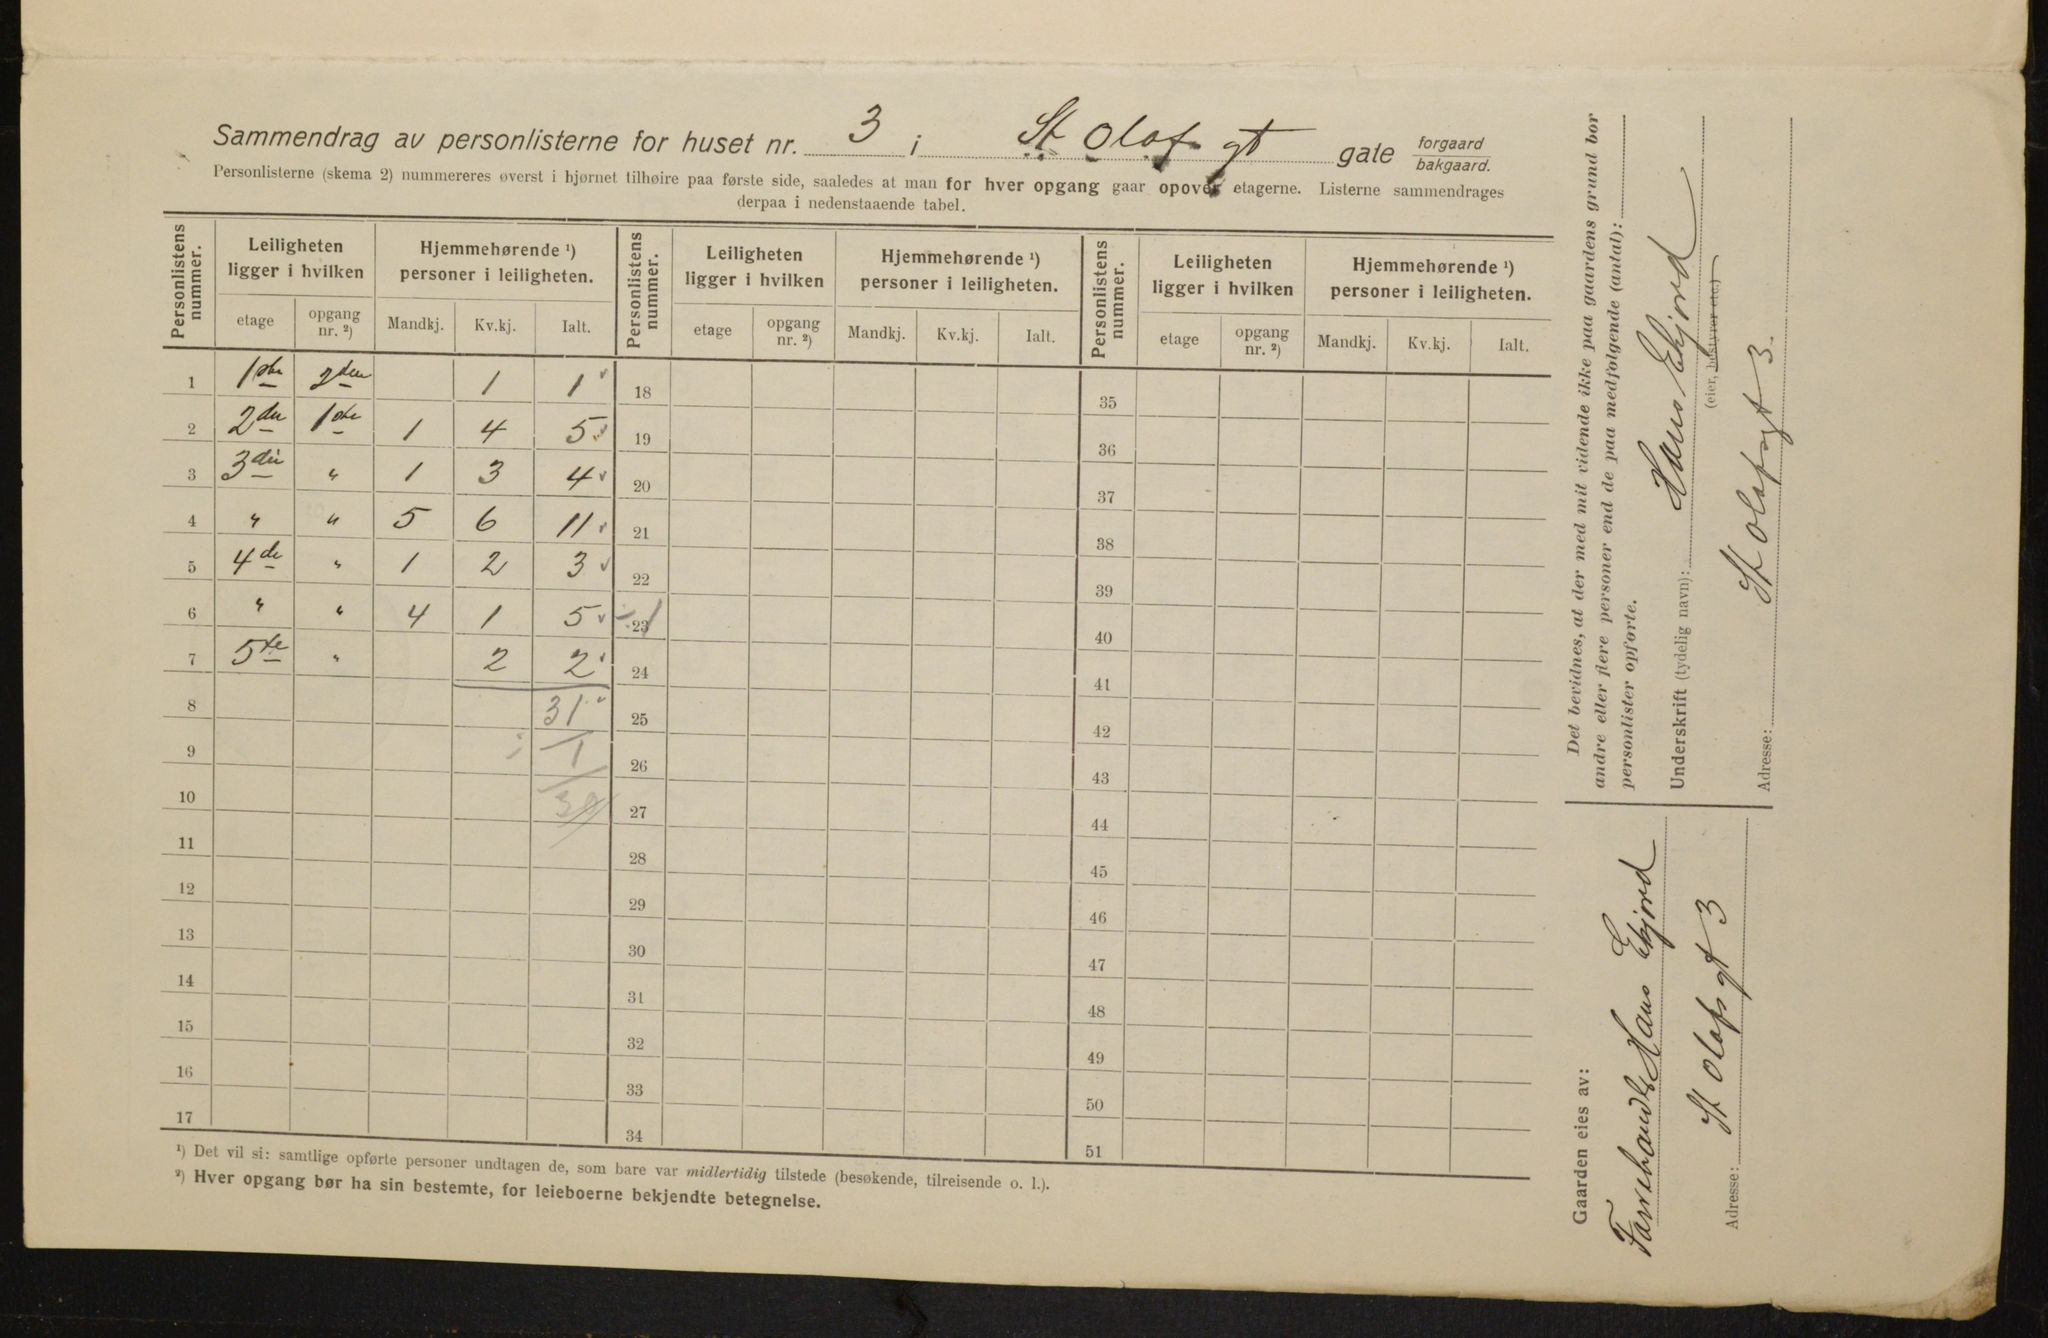 Sammendrag av personlisterne for huset nr. 3 i St Olafs gt gate forgaard bakgaard.
Personlisterne (skema 2) nummereres øverst i hjørnet tilhøire paa første side, saaledes at man for hver opgang gaar opover etagerne. Listerne sammendrages
derpaa i nedenstaaende tabel.
Personlistens nummer. Leiligheten ligger i hvilken Hjemmehørende ¹) personer i leiligheten. Personlistens nummer. Leiligheten ligger i hvilken Hjemmehørende ¹) personer i leiligheten. Personlistens nummer. Leiligheten ligger i hvilken Hjemmehørende ¹) personer i leiligheten.
etage opgang nr. ²) Mandkj. Kv.kj. Ialt. etage opgang nr. ²) Mandkj. Kv.kj. Ialt. etage opgang nr. ²) Mandkj. Kv.kj. Ialt.
1 1ste 2den 1 1 18 35
2 2den 1ste 1 4 5 19 36
3 3die " 1 3 4 20 37
4 " " 5 6 11 21 38
5 4de " 1 2 3 22 39
6 " " 4 1 5 ÷1 23 40
7 5te " 2 2 24 41
8 31 25 42
9 ÷ 1 26 43
10 30 27 44
11 28 45
12 29 46
13 30 47
14 31 48
15 32 49
16 33 50
17 34 51
¹) Det vil si: samtlige opførte personer undtagen de, som bare var midlertidig tilstede (besøkende, tilreisende o. l.).
²) Hver opgang bør ha sin bestemte, for leieboerne bekjendte betegnelse.
Det bevidnes, at der med mit vidende ikke paa gaardens grund bor
andre eller flere personer end de paa medfølgende (antal):
personlister opførte.
Underskrift (tydelig navn): Hans Ekjord
(eier, bestyrer etc.)
Adresse: St Olafsgt 3.
Gaarden eies av:
Hans Ekjord
Adresse: St Olafsgt 3